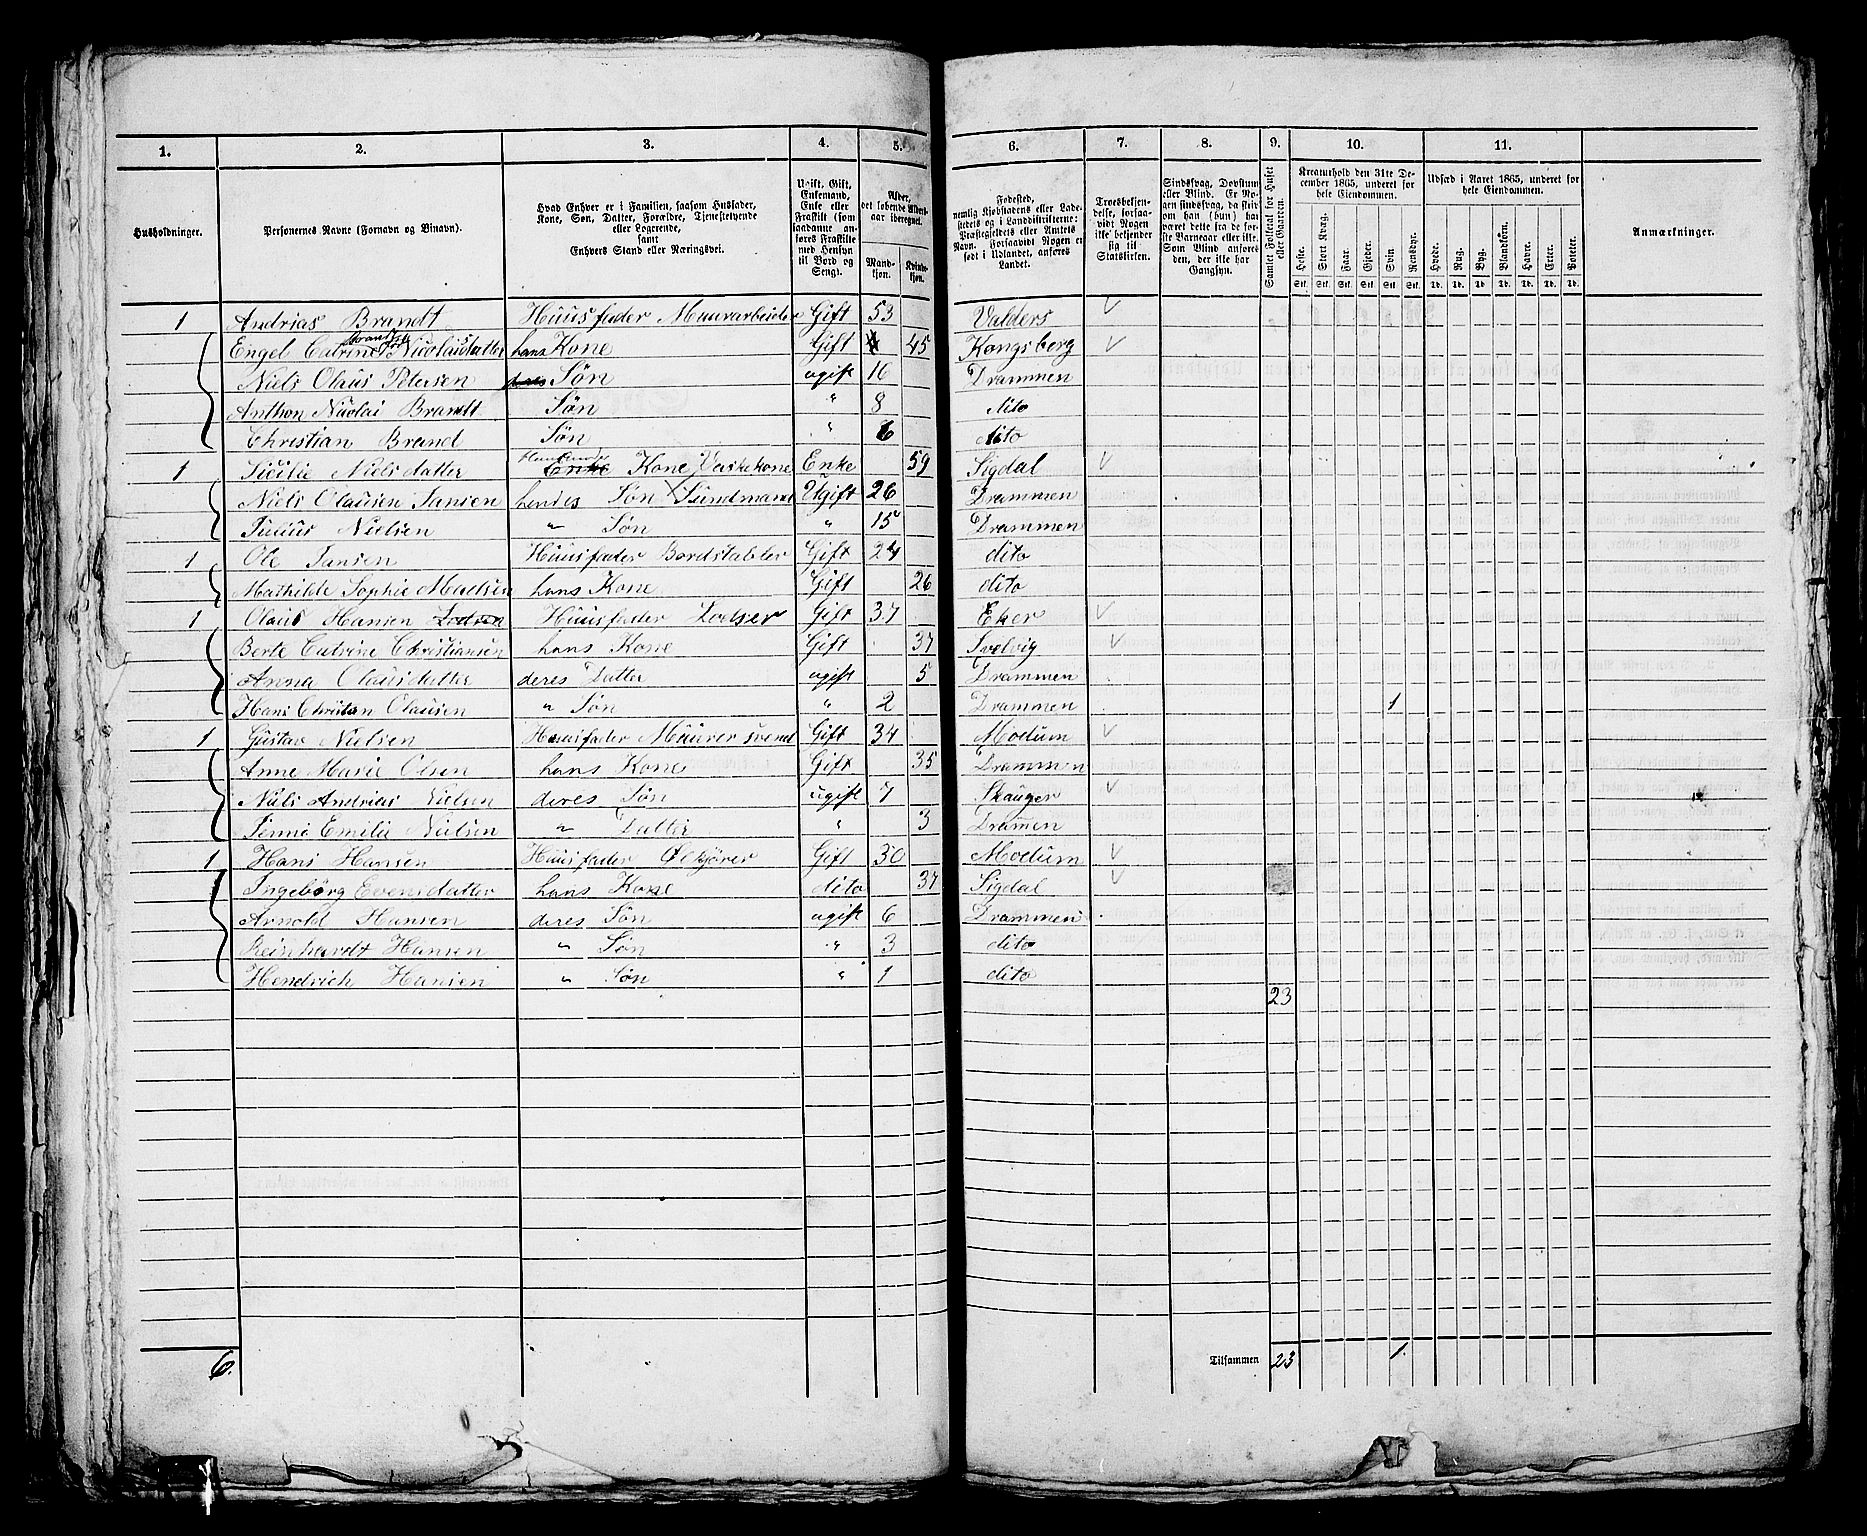 1. 2. 3. 4. 5. 6. 7. 8. 9. 10. 11.
Husholdninger.
Personernes Navne (Fornavn og Binavn).
Hvad Enhver er i Familien, saasom Husfader, Kone, Søn, Datter, Forældre, Tjenestetyende eller Logerende, samt Enhvers Stand eller Næringsvei.
Ugift, Gift, Enkemand, Enke eller Fraskilt (som saadanne anføres Fraskilte med Hensyn til Bord og Seng).
Alder, det løbende Alders-aar iberegnet.
Mand-kjøn. Kvinde-kjøn.
Fødested, nemlig Kjøbstadens eller Ladestedets og i Landdistrikterne: Præstegjeldets eller Amtets Navn. Forsaavidt Nogen er født i Udlandet, anføres Landet.
Troesbekjendelse, forsaavidt Nogen ikke bekjender sig til Statskirken.
Sindssvag, Døvstum eller Blind. Er Nogen sindssvag, da skriv om han (hun) har været dette fra de første Barneaar eller ikke. Som Blind anføres den, der ikke har Gangsyn.
Samlet Folketal for Huset eller Gaarden.
Kreaturhold den 31te December 1865, underet for hele Eiendommen.
Heste. Stort Kvæg. Faar. Gjeder. Svin. Rensdyr.
Stk. Stk. Stk. Stk. Stk. Stk.
Udsæd i Aaret 1865, underet for hele Eiendommen.
Hvede. Rug. Byg. Blandkorn. Havre. Erter. Poteter.
Td. Td. Td. Td. Td. Td. Td.
Anmærkninger.
1 Andrias Brandt Huusfader Muurarbeider Gift 53 Valders
Engel Catrine Nicolaisdatter hans Kone Gift 45 Kongsberg
Niels Olaus Petersen deres Søn ugift 16 Drammen
Anthon Nicolai Brandt Søn " 8 dito
Christian Brand Søn " 6 dito
1 Sicilie Nielsdatter Enke Kone Vaskekone Enke 59 Sigdal
Niels Olausen Jansen hendes Søn Sundmand Ugift 26 Drammen
Julius Nielsen " Søn " 15 Drammen
1 Ole Jansen Huusfader Bordstabler Gift 24 dito
Mathilde Sophie Madsen hans Kone Gift 26 dito
1 Olaus Hansen Lodsen Huusfader Lodser Gift 37 Eker
Berte Catrine Christiansen hans Kone Gift 37 Svelvig
Anna Olausdatter deres Datter ugift 5 Drammen
Hans Christian Olausen " Søn " 2 Drammen 1
1 Gustav Nielsen Huusfader Muurersvend Gift 34 Modum
Anne Marie Olsen hans Kone Gift 35 Drammen
Niels Andrias Nielsen deres Søn ugift 7 Skauger
Jenni Emilie Nielsen " Datter " 3 Dramen
1 Hans Hansen Huusfader Ølkjører Gift 30 Modum
Ingebörg Evensdatter hans Kone dito 37 Sigdal
Arnold Hansen deres Søn ugift 6 Drammen
Reinhardt Hansen " Søn " 3 dito
Hendrich Hansen " Søn " 1 dito
23
6. Tilsammen 23 1.